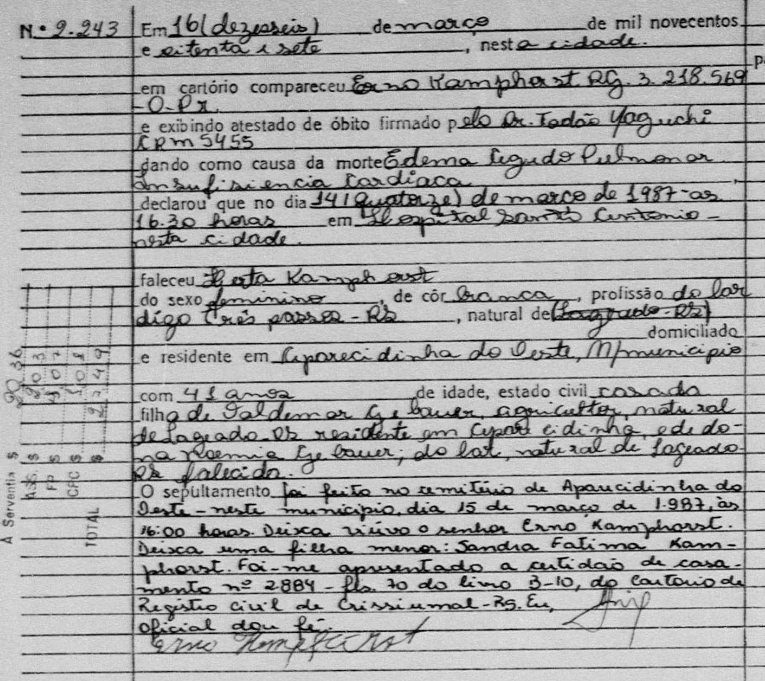 Nº 2.243 Em 16 (dezesseis) de março de mil novecentos
e oitenta e sete, nesta cidade.
em cartório compareceu Erno Kamphorst RG. 3.218.569
-O-Pr.
e exibindo atestado de óbito firmado pelo Dr. Tadão Yaguchi
CRM 5455
dando como causa da morte Edema Agudo Pulmonar
Insufisiencia Cardiaca
declarou que no dia 14 (Quatorze) de março de 1987-as
16.30 horas em Hospital Santo Antonio -
nesta cidade.
faleceu Herta Kamphorst
do sexo feminino, de côr branca, profissão do lar
digo Três passos - RS, natural de (Lageado-RS)
domiciliado
e residente em Aparecidinha do Oeste, N/município
com 41 anos de idade, estado civil casada
filha de Valdemar Gebauer, agricultor, natural
de Lageado-RS residente em Aparecidinha, e de do-
na Noemia Gebauer, do lar, natural de Lageado
RS falecida.
O sepultamento foi feito no cemitério de Aparecidinha do
Oeste - neste município, dia 15 de março de 1.987, às
16:00 horas. Deixa viúvo o senhor Erno Kamphorst.
Deixa uma filha menor: Sandra Fatima Kam-
phorst. Foi-me apresentado a certidão de casa-
mento nº 2884 - fls. 70 do livro B-10, do Cartorio de
Registro civil de Crissiumal-Rs. Eu,
oficial dou fé.
Erno Kamphorst
À Serventia $
ASS. $
FP $
CPC $
TOTAL $